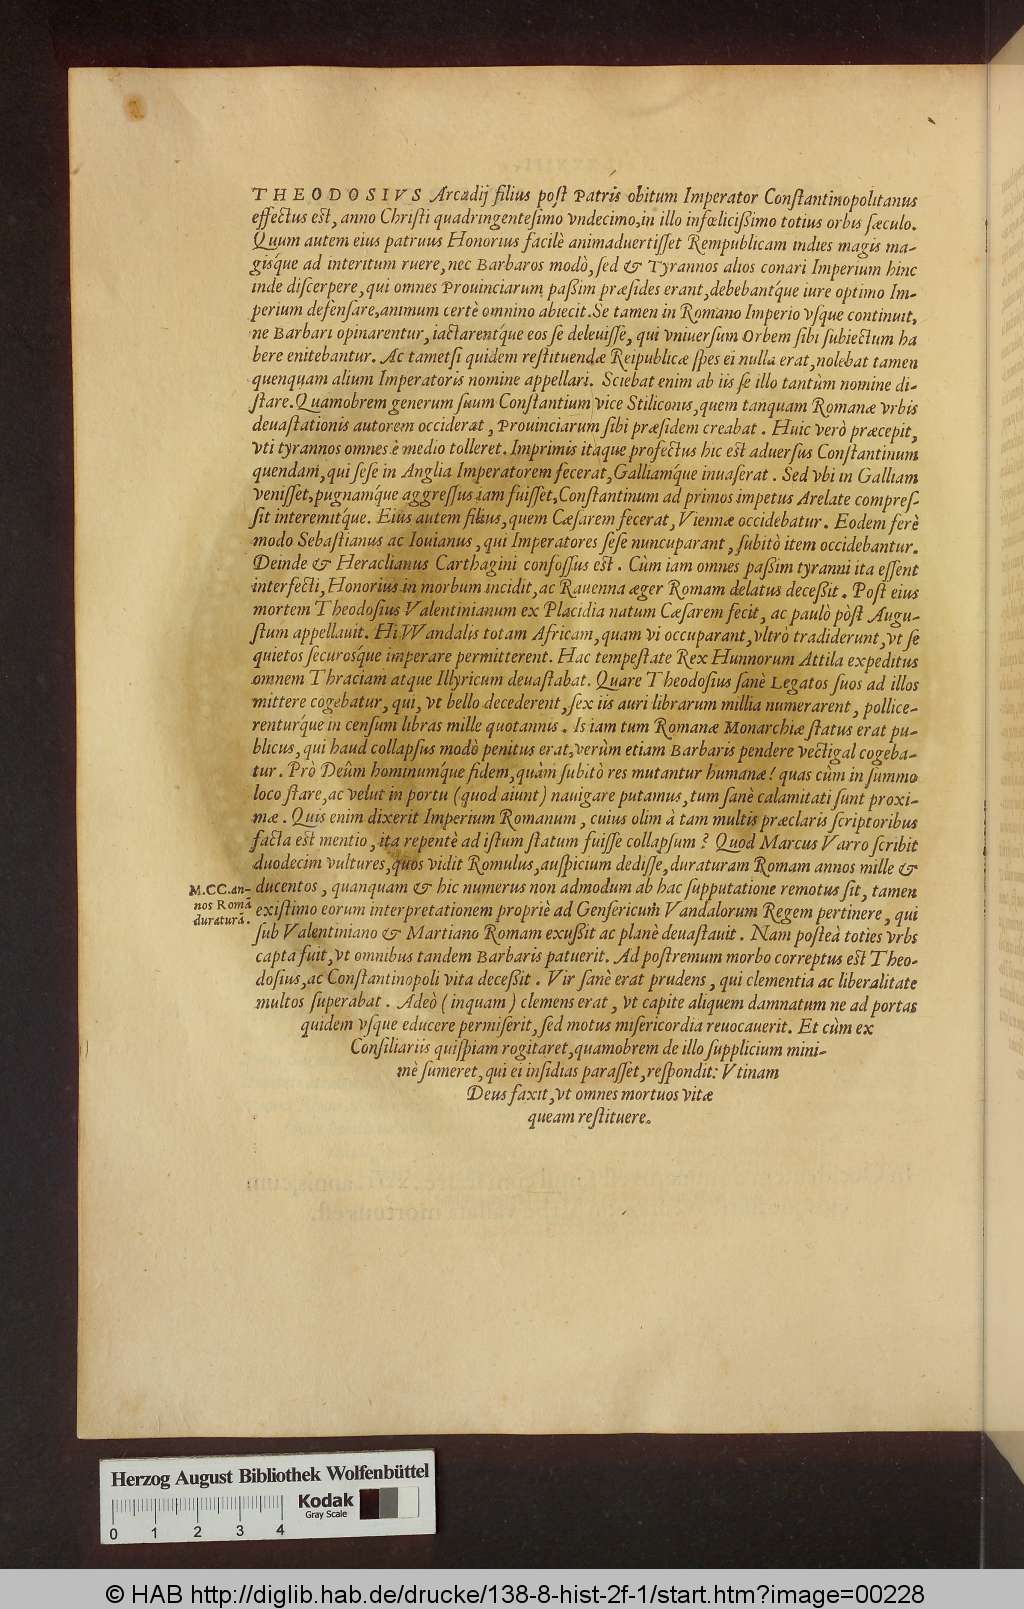 THEODOSIVS Arcadij filius poſt Patris obitum Imperator Conſtantinopolitanus
effectus eſt, anno Chriſti quadringenteſimo vndecimo, in illo infœliciſsimo totius orbis ſæculo.
Quum autem eius patruus Honorius facilè animaduertiſſet Rempublicam indies magis ma-
gisq́ue ad interitum ruere, nec Barbaros modò, ſed & Tyrannos alios conari Imperium hinc
inde diſcerpere, qui omnes Prouinciarum paſsim præſides erant, debebantq́ue iure optimo Im-
perium defenſare, animum certè omnino abiecit. Se tamen in Romano Imperio vſque continuit,
ne Barbari opinarentur, iactarentq́ue eos ſe deleuiſſe, qui vniuerſum Orbem ſibi ſubiectum ha
bere enitebantur. Ac tametſi quidem reſtituendæ Reipublicæ ſpes ei nulla erat, nolebat tamen
quenquam alium Imperatoris nomine appellari. Sciebat enim ab iis ſe illo tantùm nomine di-
ſtare. Quamobrem generum ſuum Conſtantium vice Stiliconis, quem tanquam Romanæ vrbis
deuaſtationis autorem occiderat, Prouinciarum ſibi præſidem creabat. Huic verò præcepit,
vti tyrannos omnes è medio tolleret. Imprimis itaque profectus hic eſt aduerſus Conſtantinum
quendam, qui ſeſe in Anglia Imperatorem fecerat, Galliamq́ue inuaſerat. Sed vbi in Galliam
veniſſet, pugnamq́ue aggreſſus iam fuiſſet, Conſtantinum ad primos impetus Arelate compreſ-
ſit interemitq́ue. Eius autem filius, quem Cæſarem fecerat, Viennæ occidebatur. Eodem ferè
modo Sebaſtianus ac Iouianus, qui Imperatores ſeſe nuncuparant, ſubitò item occidebantur.
Deinde & Heraclianus Carthagini confoſſus eſt. Cùm iam omnes paſsim tyranni ita eſſent
interfecti, Honorius in morbum incidit, ac Rauenna æger Romam delatus deceſsit. Poſt eius
mortem Theodoſius Valentinianum ex Placidia natum Cæſarem fecit, ac paulò pòſt Augu-
ſtum appellauit. Hi Wandalis totam Africam, quam vi occuparant, vltrò tradiderunt, vt ſe
quietos ſecurosq́ue imperare permitterent. Hac tempeſtate Rex Hunnorum Attila expeditus
omnem Thraciam atque Illyricum deuaſtabat. Quare Theodoſius ſanè Legatos ſuos ad illos
mittere cogebatur, qui, vt bello decederent, ſex iis auri librarum millia numerarent, pollice-
renturq́ue in cenſum libras mille quotannis. Is iam tum Romanæ Monarchiæ ſtatus erat pu-
blicus, qui haud collapſus modò penitus erat, verùm etiam Barbaris pendere vectigal cogeba-
tur. Prò Deûm hominumq́ue fidem, quàm ſubitò res mutantur humanæ! quas cùm in ſummo
loco ſtare, ac velut in portu (quod aiunt) nauigare putamus, tum ſanè calamitati ſunt proxi-
mæ. Quis enim dixerit Imperium Romanum, cuius olim à tam multis præclaris ſcriptoribus
facta eſt mentio, ita repentè ad iſtum ſtatum fuiſſe collapſum? Quod Marcus Varro ſcribit
duodecim vultures, quos vidit Romulus, auſpicium dediſſe, duraturam Romam annos mille &
M.CC. an-
nos Romā
duraturā.
ducentos, quanquam & hic numerus non admodum ab hac ſupputatione remotus ſit, tamen
exiſtimo eorum interpretationem propriè ad Genſericum Vandalorum Regem pertinere, qui
ſub Valentiniano & Martiano Romam exuſsit ac planè deuaſtauit. Nam poſteà toties vrbs
capta fuit, vt omnibus tandem Barbaris patuerit. Ad poſtremum morbo correptus eſt Theo-
doſius, ac Conſtantinopoli vita deceſsit. Vir ſanè erat prudens, qui clementia ac liberalitate
multos ſuperabat. Adeò (inquam) clemens erat, vt capite aliquem damnatum ne ad portas
quidem vſque educere permiſerit, ſed motus miſericordia reuocauerit. Et cùm ex
Conſiliariis quiſpiam rogitaret, quamobrem de illo ſupplicium mini-
mè ſumeret, qui ei inſidias paraſſet, reſpondit: Vtinam
Deus faxit, vt omnes mortuos vitæ
queam reſtituere.
Herzog August Bibliothek Wolfenbüttel
Kodak
Gray Scale
0 1 2 3 4
© HAB http://diglib.hab.de/drucke/138-8-hist-2f-1/start.htm?image=00228